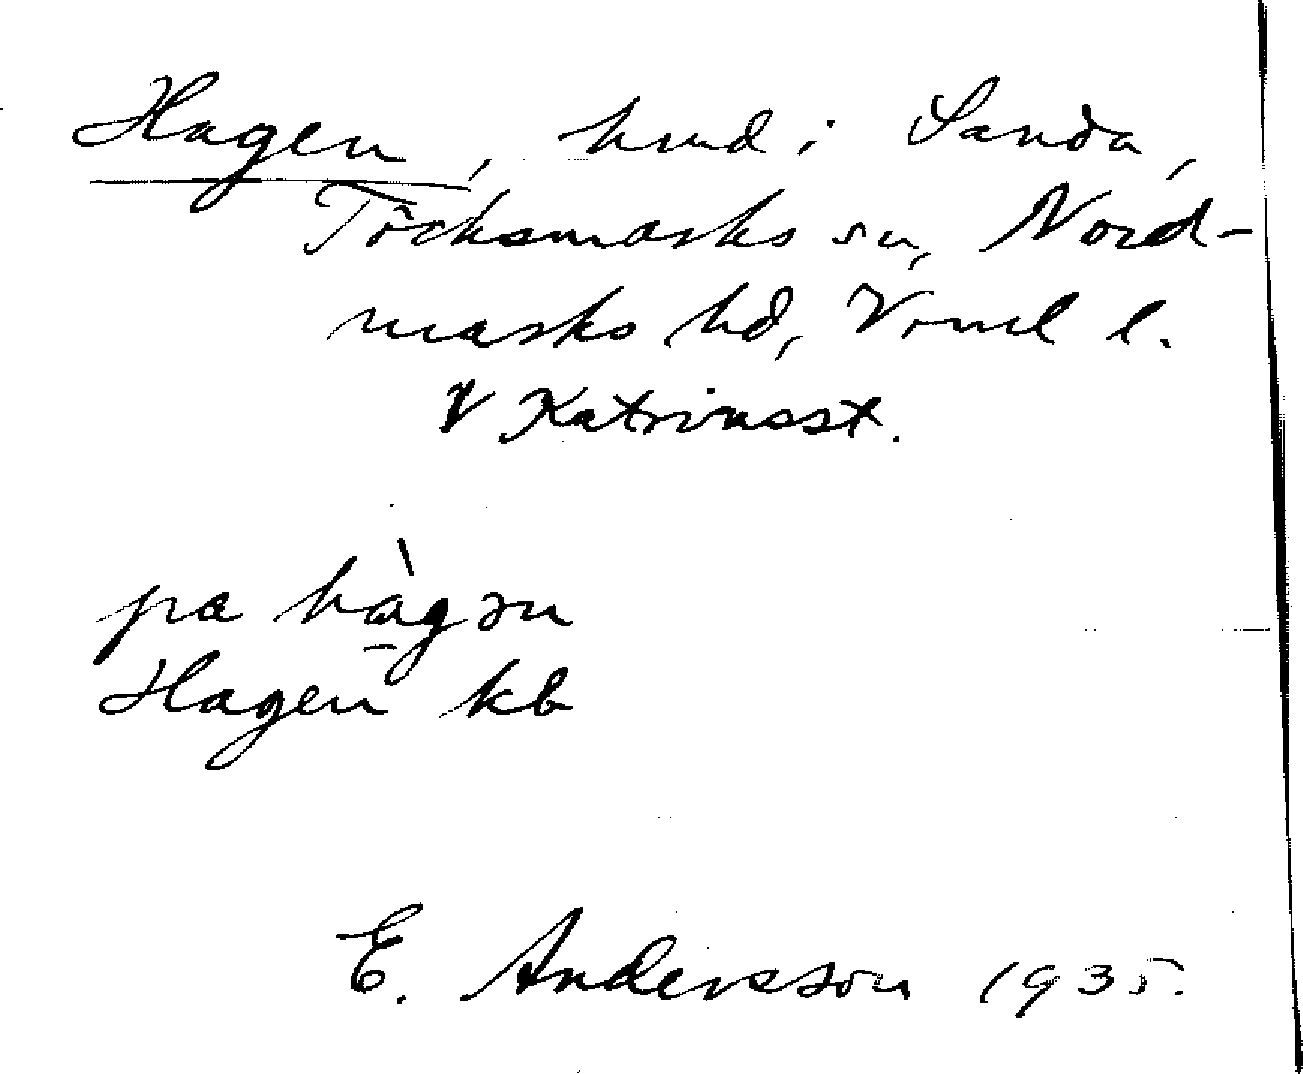 Hagen, hmd i Sanda,
Töcksmarks sn, Nord-
marks hd, Vrml l.
V Katrinesst.
pa hàgən
Hagen kb
E. Andersson 1935.